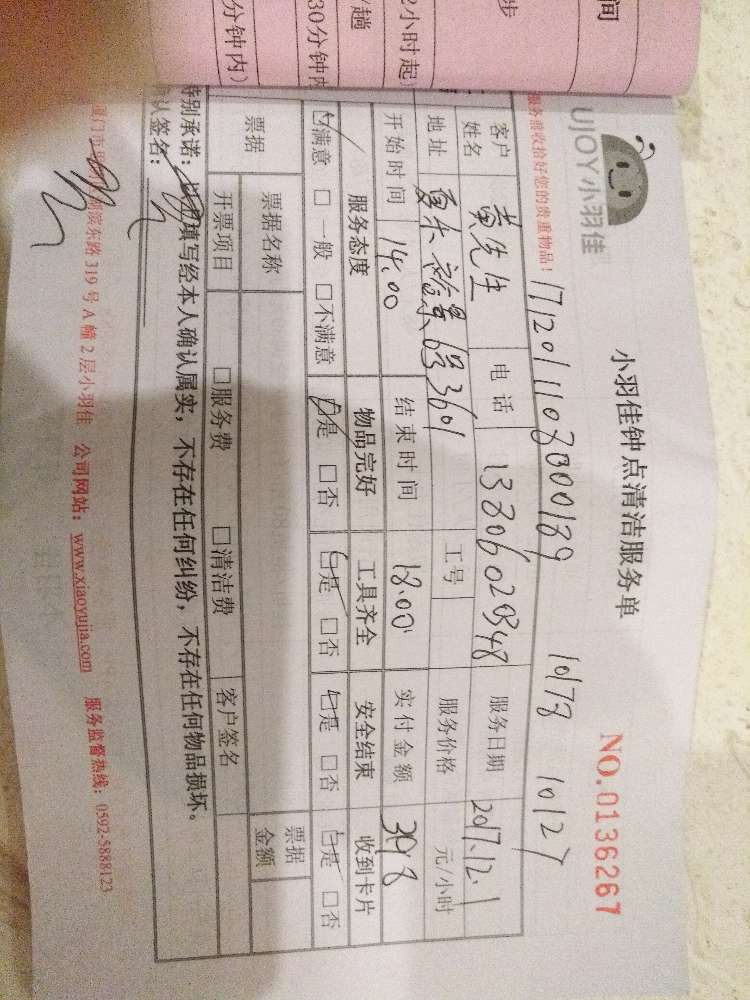 间
步
2小时起)
趟
30分钟内
分钟内)
UJOY小羽佳
小羽佳钟点清洁服务单
NO.0136267
服务前收拾好您的贵重物品!
1712011108000189 10178 10127
客户姓名 黄先生 电话 13806029348 服务日期 2017.12.1
地址 3601 工号 服务价格 元/小时
开始时间 14.00 结束时间 18.00 实付金额
服务态度 物品完好 工具齐全 安全结束 收到卡片
☑满意 □一般 □不满意 ☑是 □否 ☑是 □否 ☑是 □否 ☑是 □否
票据 票据名称 票据金额
开票项目 □服务费 □清洁费 客户签名
特别承诺: 填写经本人确认属实,不存在任何纠纷,不存在任何物品损坏。
认签名:
厦门市 湖滨东路319号A幢2层小羽佳 公司网站:www.xiaoyujia.com 服务监督热线:0592-5888123